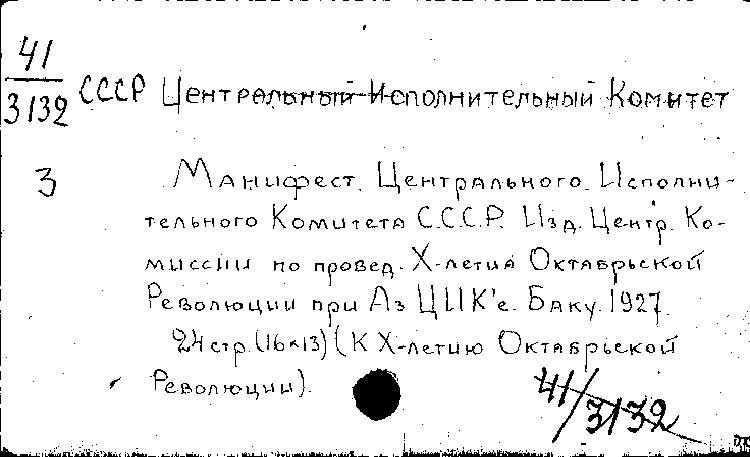 41
3132
СССР Центральный Исполнительный Комитет
З
Манифест. Центрального. Исполни-
тельного Комитета С.С.С.Р. Изд. Центр. Ко-
миссии по провед. X-летия Октябрьской
Революции при Аз ЦИК'е. Баку. 1927.
24 стр. (16×13) (К X-летию Октябрьской
Революции).
41/3132